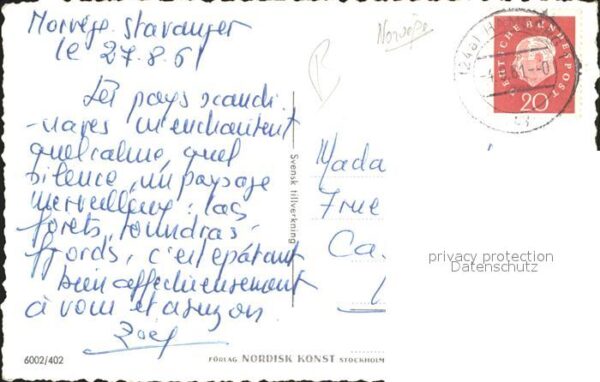 Norvège. Stavanger
le 27.8.61
Les pays scandi
-naves m'enchantent
quel calme, quel
silence, un paysage
merveilleux: lacs
forêts, toundras-
fjords, c'est épatant
bien affectueusement
à vous et à
6002/402
FÖRLAG NORDISK KONST STOCKHOLM
Svensk tillverkning
Norvège
Mada
Ca.
DEUTSCHE BUNDESPOST
20
privacy protection
Datenschutz